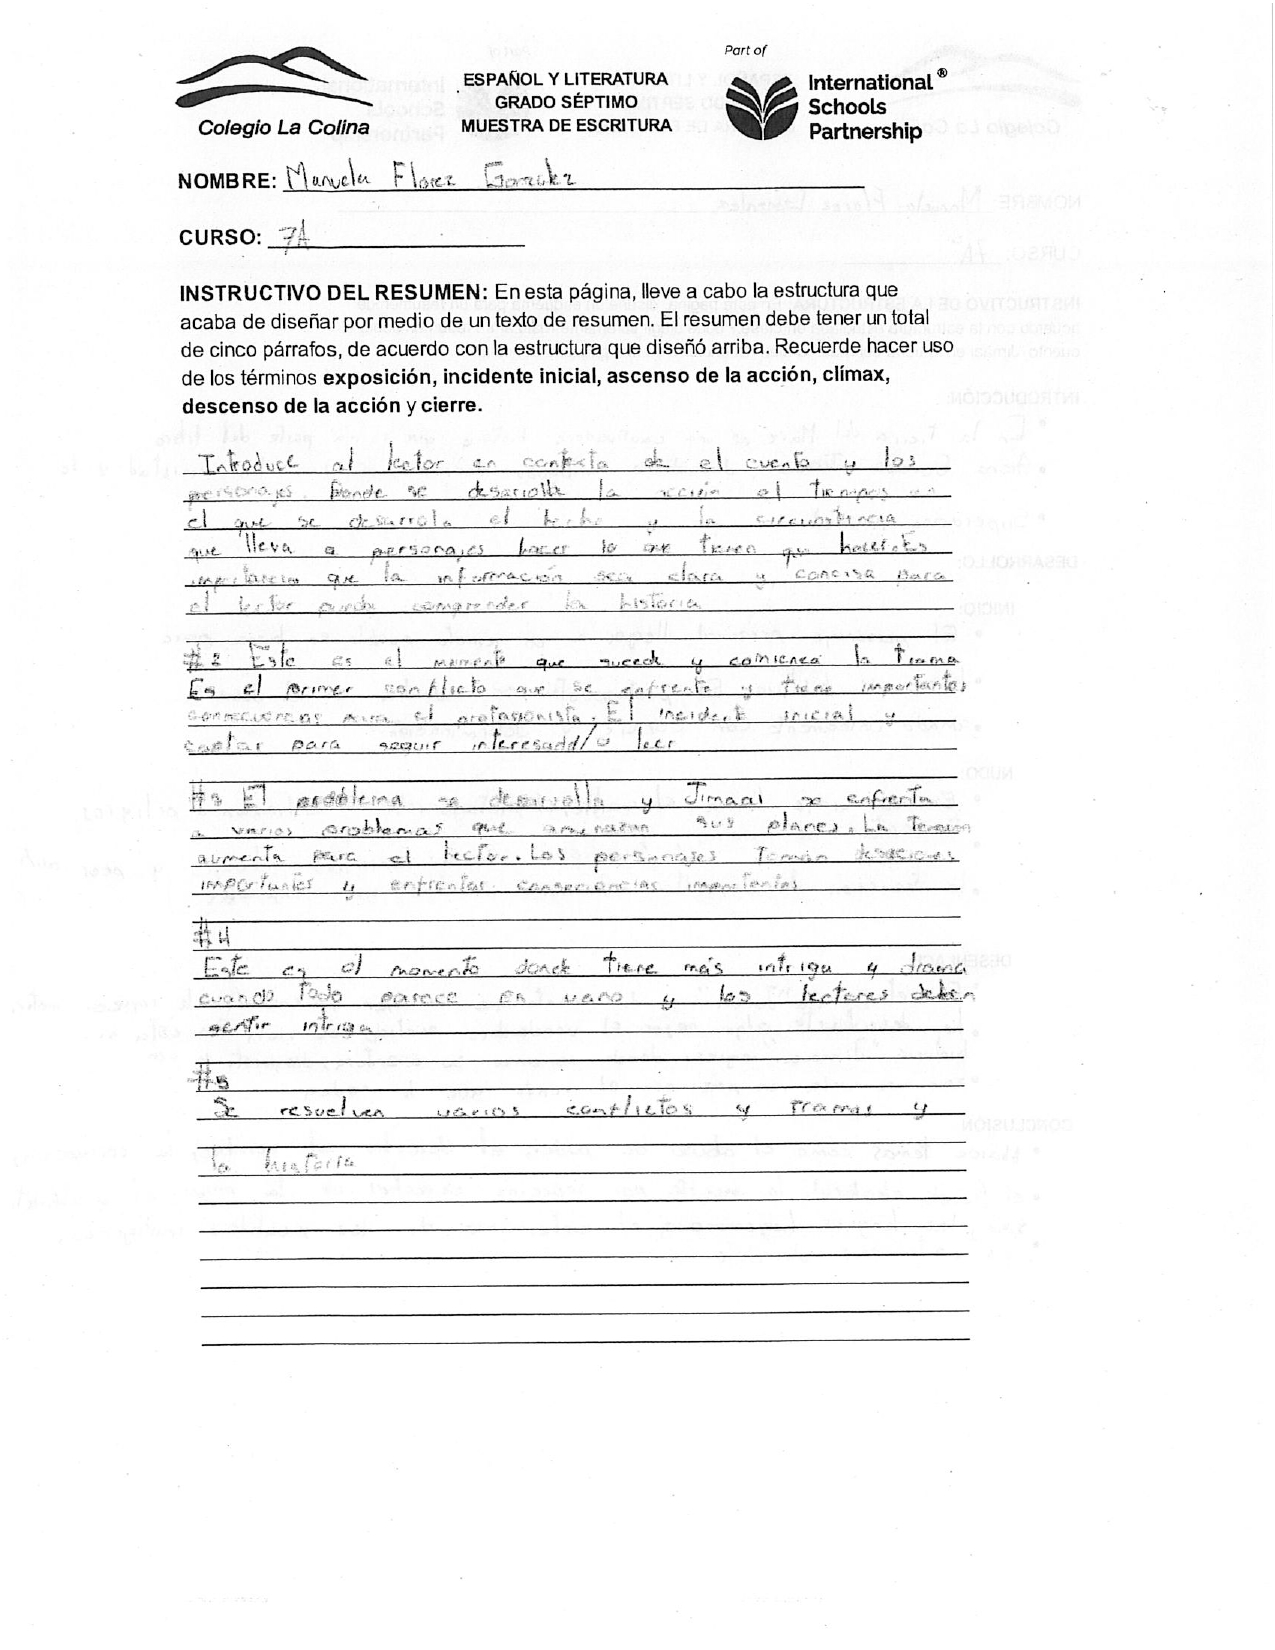 Part of
ESPAÑOL Y LITERATURA
GRADO SÉPTIMO
MUESTRA DE ESCRITURA
Colegio La Colina
International ®
Schools
Partnership
NOMBRE: Manuela Florez Gonzalez
CURSO: 7A
INSTRUCTIVO DEL RESUMEN: En esta página, lleve a cabo la estructura que
acaba de diseñar por medio de un texto de resumen. El resumen debe tener un total
de cinco párrafos, de acuerdo con la estructura que diseñó arriba. Recuerde hacer uso
de los términos exposición, incidente inicial, ascenso de la acción, clímax,
descenso de la acción y cierre.
Introduce al lector en contexto de el cuento y los
personajes. Donde se desarrolla la acción el tiempo en
el que se desarrola el hecho y la circunstancia
que lleva a personajes hacer lo que tienen que hacer. Es
importancia que la información sea clara y concisa para
el lector pueda comprender la historia
#2 Este es el momento que sucede y comienza la trama
Es el primer conflicto que se enfrenta y tiene importantes
consecuencias para el protagonista. El incidente inicial y
captar para seguir interesadd/o leer
#3 El problema se desarrolla y Jimaal se enfrenta
a varios problemas que amenazan sus planes. La Tension
aumenta para el lector. Los personajes toman desiciones
importantes y enfrentas consecuencias importantes
#4
Este es el momento donde tiene más intriga y drama
cuando todo parece en vano y los lectores deben
sentir intriga
#5
Se resuelven varios conflictos y tramas y
la historia